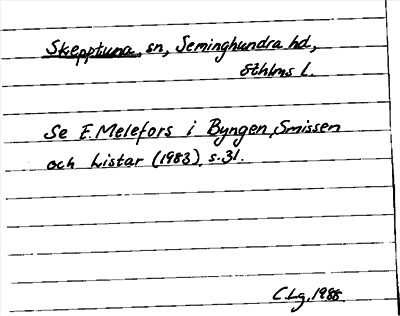 Skepptuna, sn, Seminghundra hd,
Sthlms l.
Se E. Melefors i Byngen, Smissen
och Listar (1983), s. 31.
C. Lg. 1988